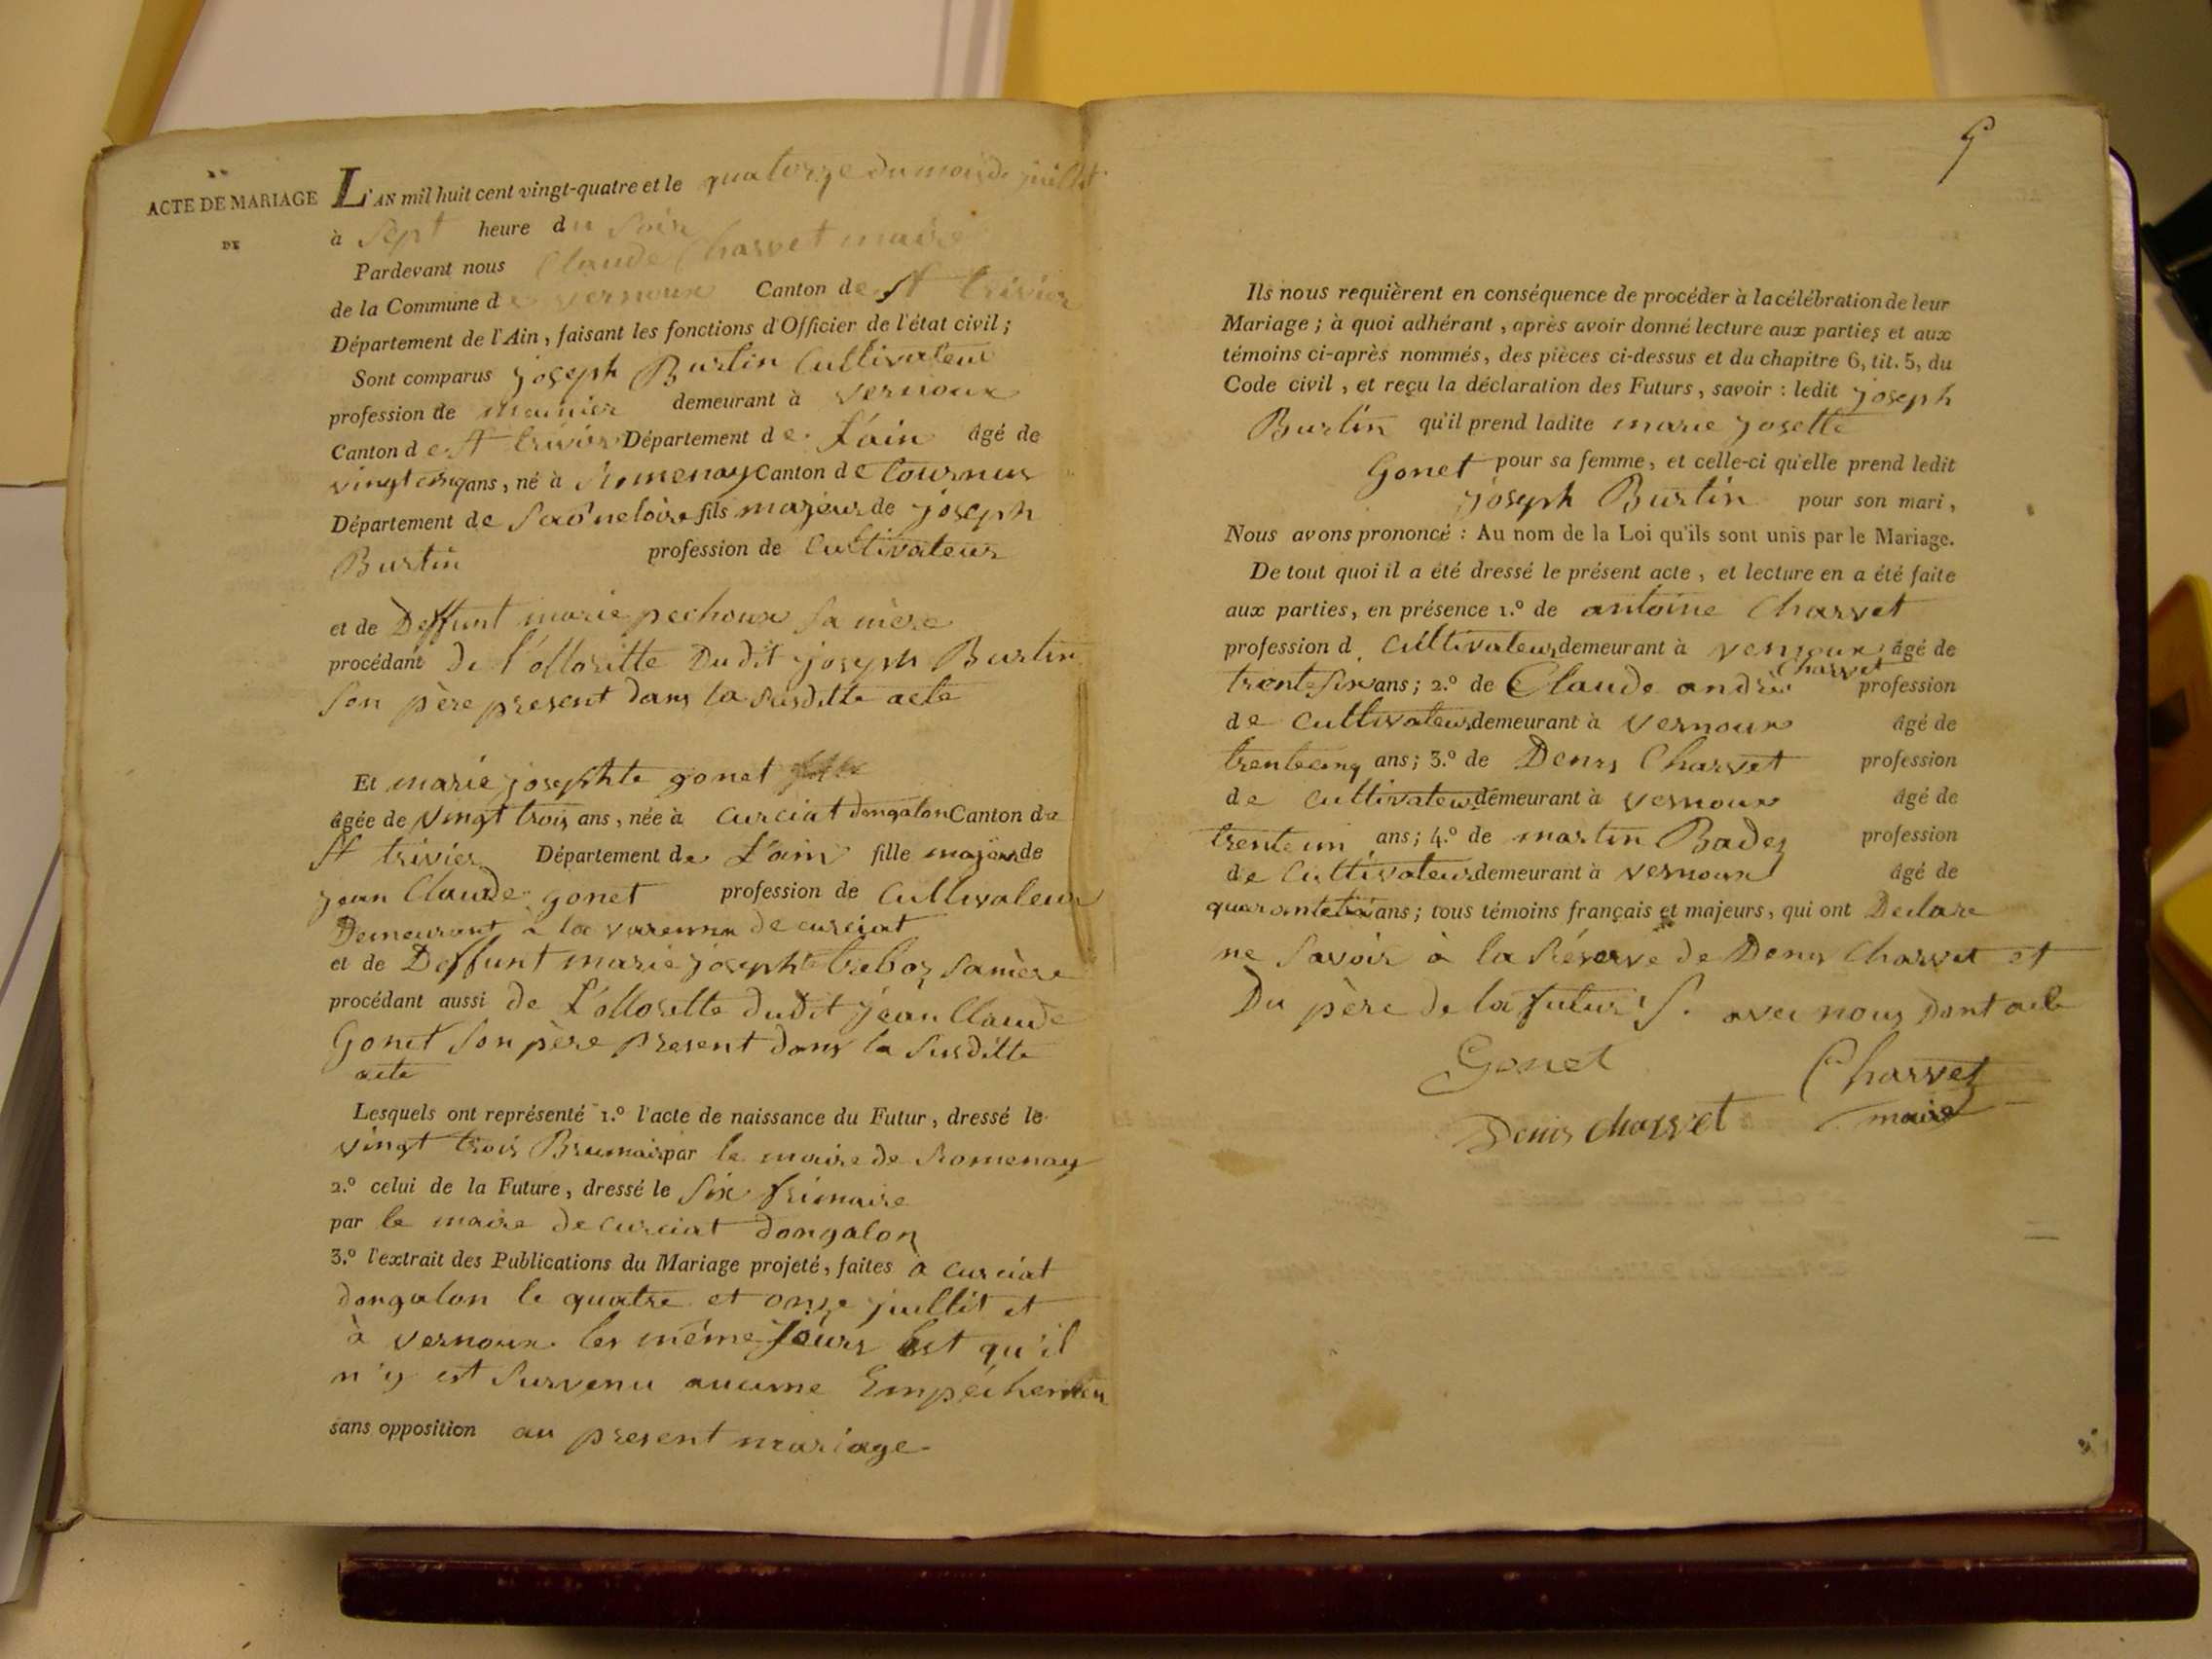 ACTE DE MARIAGE
DE
L'AN mil huit cent vingt-quatre et le quatorze du mois de juillet
à sept heure du soir
Pardevant nous Claude Charvet maire
de la Commune de vernoux Canton de st trivier
Département de l'Ain, faisant les fonctions d'Officier de l'état civil;
Sont comparus joseph Burtin Cultivateur
profession de demeurant à vernoux
Canton de st trivier Département de L'ain âgé de
vingt cinq ans, né à Romenay Canton de tournus
Département de Saône loire fils majeur de joseph
Burtin profession de Cultivateur
et de Deffunt marie pechoux sa mère
procédant de l'ottoritte dudit joseph Burtin
son père present dans la susditte acte
Et marie josephte gonet
âgée de vingt trois ans, née à curciat dongalon Canton de
st trivier Département de L'ain fille majeur de
jean Claude gonet profession de Cultivateur
Demeurant à la varenne de curciat
et de Deffunt marie josephte treboz sa mère
procédant aussi de L'ottoritte dudit jean Claude
Gonet son père present dans la susditte
acte
Lesquels ont représenté 1.º l'acte de naissance du Futur, dressé le
vingt trois Brumair par le maire de Romenay
2.º celui de la Future, dressé le six frimaire
par le maire de curciat dongalon
3.º l'extrait des Publications du Mariage projeté, faites à curciat
dongalon le quatre et onze juillit et
à vernoux les même jours est qu'il
n'y est survenu aucune Empêchemen
sans opposition au present mariage
Ils nous requièrent en conséquence de procéder à la célébration de leur
Mariage; à quoi adhérant, après avoir donné lecture aux parties et aux
témoins ci-après nommés, des pièces ci-dessus et du chapitre 6, tit. 5, du
Code civil, et reçu la déclaration des Futurs, savoir: ledit joseph
Burtin qu'il prend ladite marie josette
Gonet pour sa femme, et celle-ci qu'elle prend ledit
joseph Burtin pour son mari,
Nous avons prononcé: Au nom de la Loi qu'ils sont unis par le Mariage.
De tout quoi il a été dressé le présent acte, et lecture en a été faite
aux parties, en présence 1.º de antoine Charvet
profession d Cultivateur demeurant à vernoux âgé de
trente six ans; 2.º de Claude andré Charvet profession
de Cultivateur demeurant à vernoux âgé de
trente cinq ans; 3.º de Denis Charvet profession
de Cultivateur demeurant à vernoux âgé de
trente un ans; 4.º de martin Badez profession
de Cultivateur demeurant à vernoux âgé de
quarante trois ans; tous témoins français et majeurs, qui ont Declare
ne savoir à la Réserve de Denis Charvet et
Du père de la future s. avec nous Dont acte
Gonet Charvet
Denis charvet maire